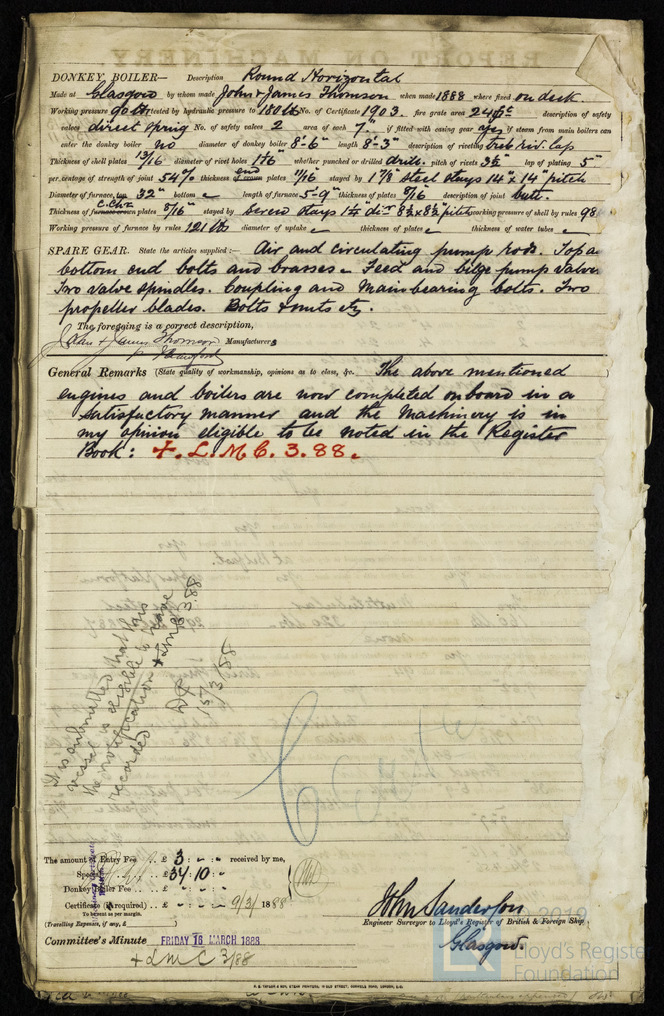 DONKEY BOILER— Description Round Horizontal
Made at Glasgow by whom made John & James Thomson when made 1888 where fixed on deck.
Working pressure 90 lbs tested by hydraulic pressure to 180 lbs No. of Certificate 1903. fire grate area 24 description of safety
valves direct spring No. of safety valves 2 area of each 7" if fitted with easing gear yes if steam from main boilers can
enter the donkey boiler no diameter of donkey boiler 8'-6" length 8'-3" description of riveting treb. riv. lap
Thickness of shell plates 13/16 diameter of rivet holes 1 1/16 whether punched or drilled drill. pitch of rivets 3 1/2 lap of plating 5"
per centage of strength of joint 54% thickness of crown end plates 11/16 stayed by 1 7/8 steel stays 14" x 14" pitch
Diameter of furnace, top 32" bottom length of furnace 5'-9" thickness of plates 8/16 description of joint butt.
Thickness of furnace crown c.chr plates 8/16 stayed by Screw stays 1 1/4 dir 8 1/2 x 8 1/2 pitch working pressure of shell by rules 98
Working pressure of furnace by rules 121 lbs diameter of uptake thickness of plates thickness of water tubes
SPARE GEAR. State the articles supplied:— Air and circulating pump rods. Top a
bottom end bolts and brasses. Feed and bilge pump valves
Two valve spindles. Coupling and Main bearing bolts. Two
propeller blades. Bolts & nuts etc.
The foregoing is a correct description,
John & James Thomson Manufacturers
General Remarks (State quality of workmanship, opinions as to class, &c. The above mentioned
engines and boilers are now completed onboard in a
satisfactory manner and the Machinery is in
my opinion eligible to be noted in the Register
Book: + L.M.C. 3.88.
It is submitted that this
vessel is eligible to have
the notification + LMC 3.88
recorded
15/3/88
The amount of Entry Fee £ 3 : - : - received by me,
Special £ 34 : 10 : -
Donkey Boiler Fee £ - : - : -
Certificate (if required) £ - : - : - 9/3/1888
To be sent as per margin.
(Travelling Expenses, if any, £ )
Committee's Minute FRIDAY 16 MARCH 1888
+ LMC 3/88
John Sanderson
Engineer Surveyor to Lloyd's Register of British & Foreign Ship
Glasgow.
Lloyd's Register
Foundation